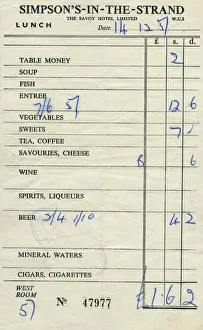 SIMPSON'S-IN-THE-STRAND
THE SAVOY HOTEL LIMITED W.C.2
LUNCH Date 14 12 57
£ s. d.
TABLE MONEY 2
SOUP
FISH
ENTREE 12 6
7/6 5/
VEGETABLES
SWEETS 7
TEA, COFFEE
SAVOURIES, CHEESE 6
WINE
SPIRITS, LIQUEURS
BEER 2/4 1/10 4 2
MINERAL WATERS
CIGARS, CIGARETTES
WEST ROOM £1 . 6 . 2
57 No 47977